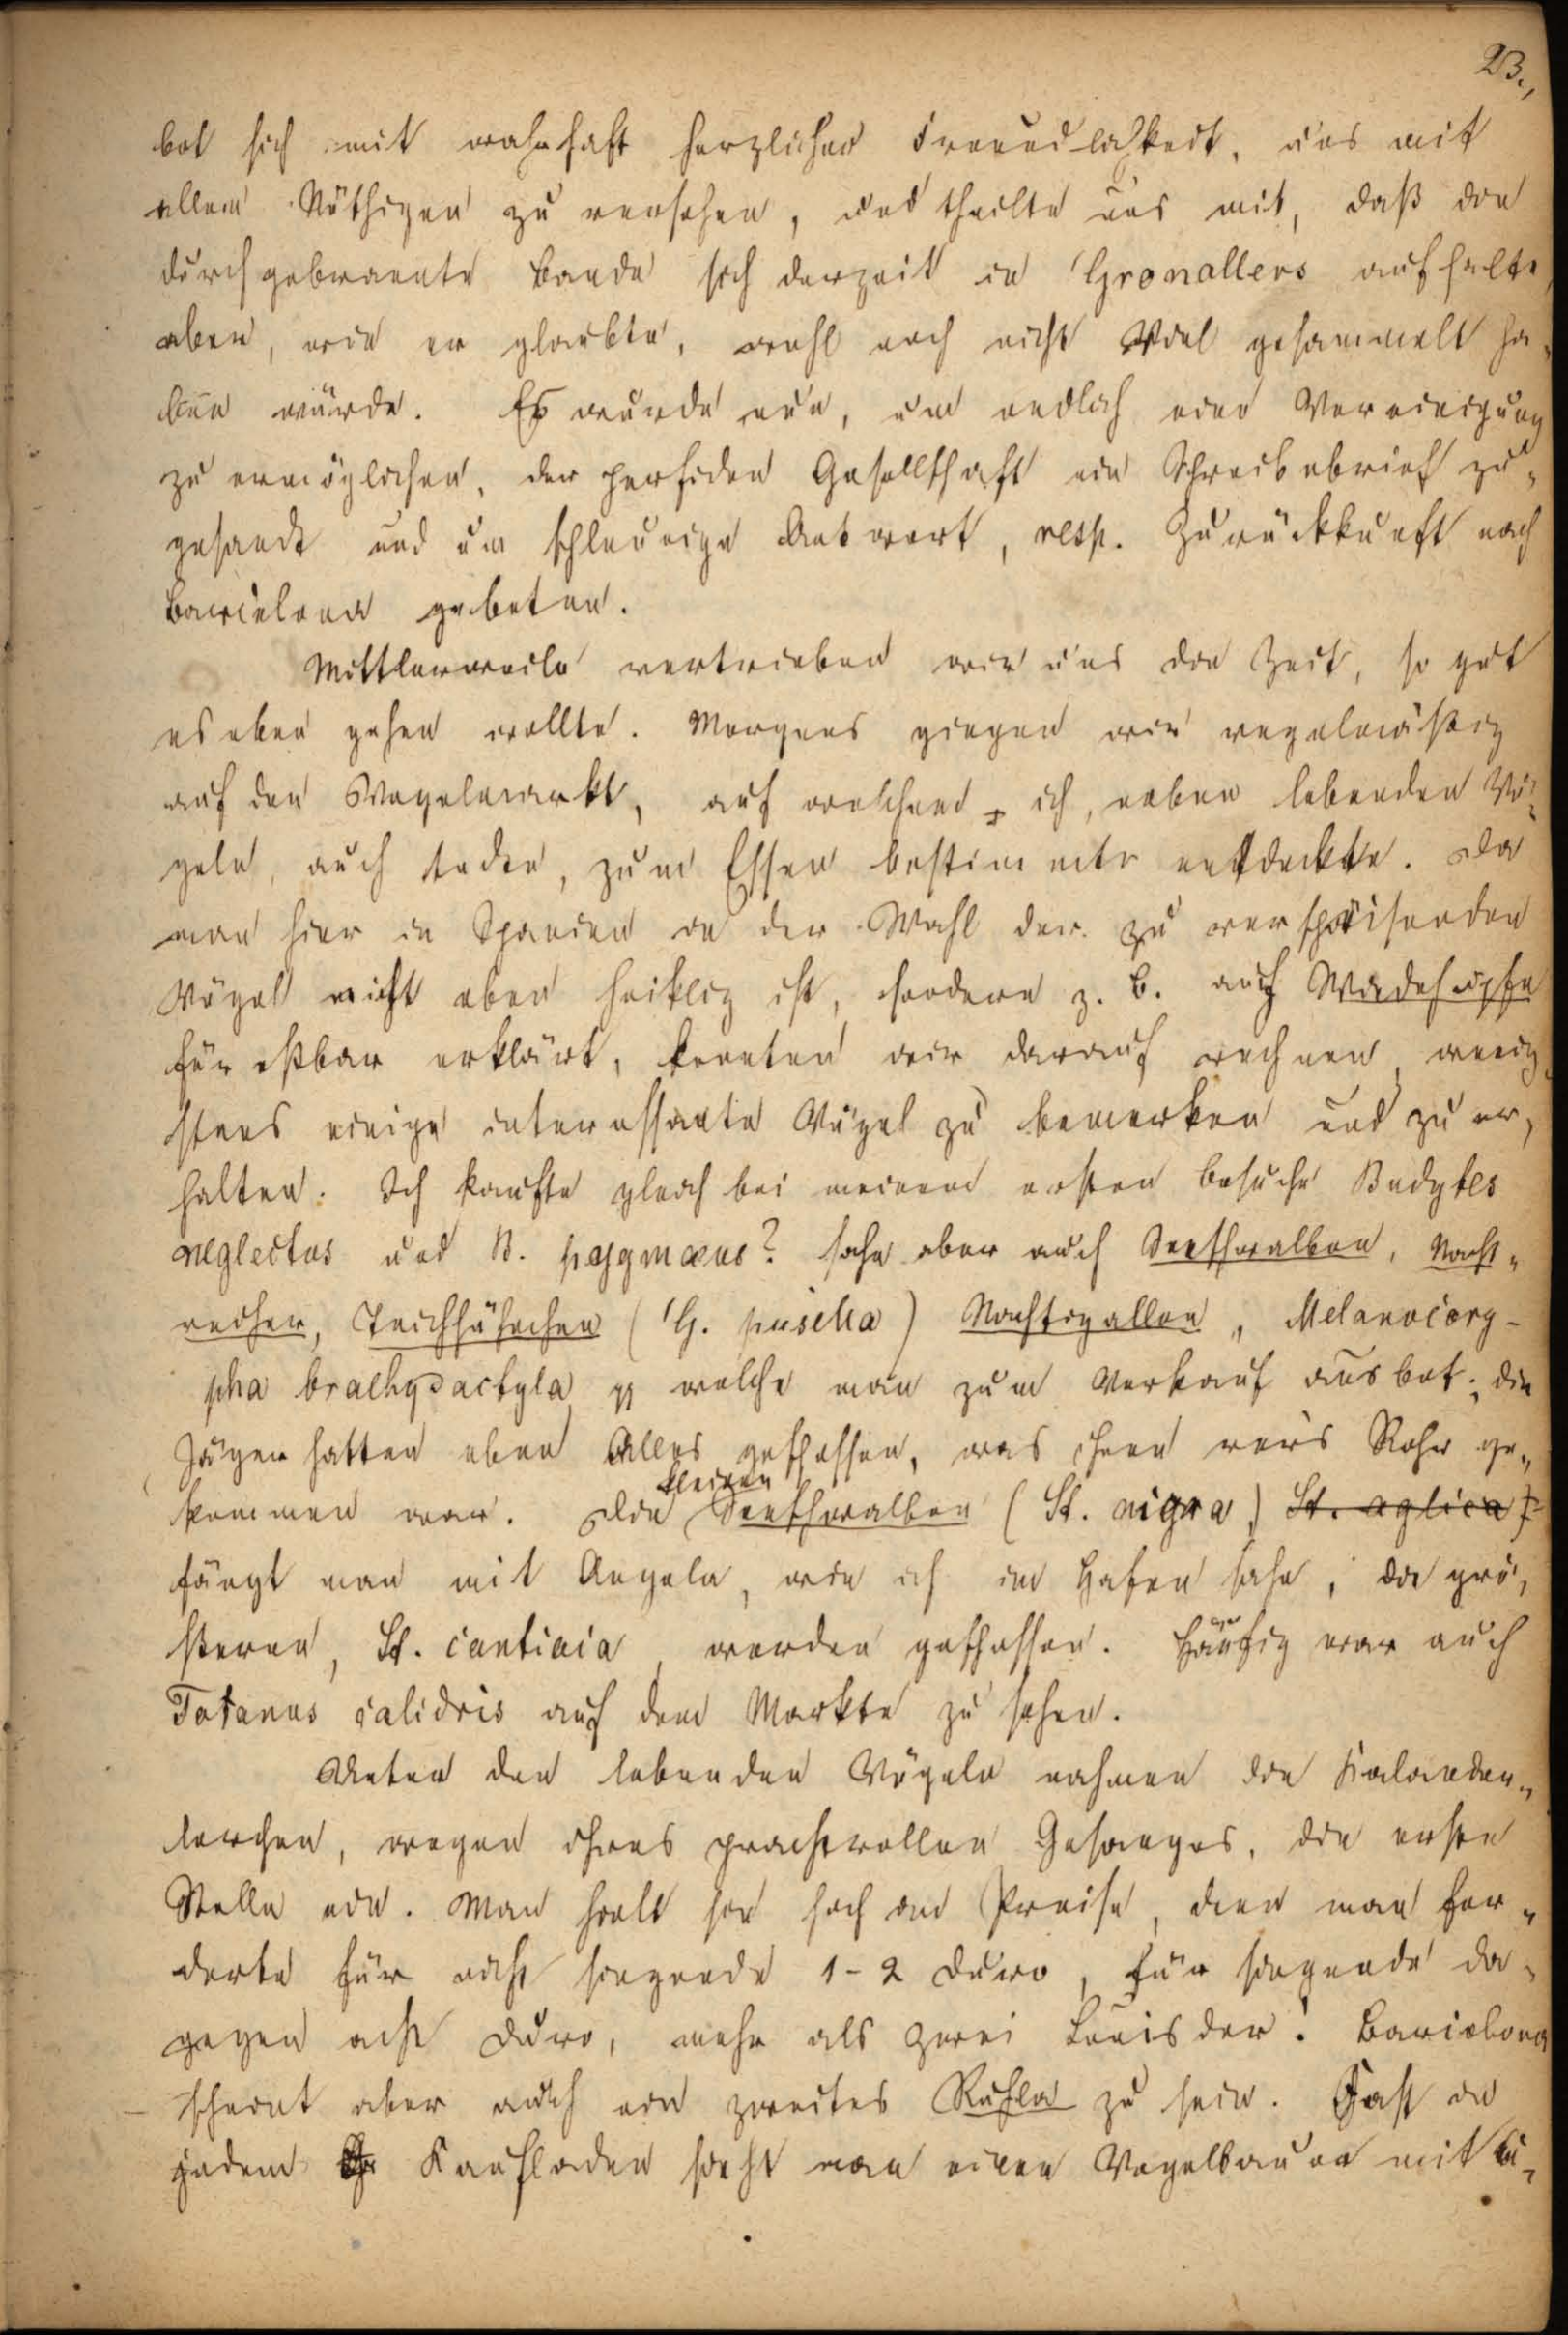 23.,
bot sich mit wahrhaft herzlicher Freundlichkeit, uns mit
allem Nöthigen zu versehen, und theilte uns mit, daß die
durchgebrannte Bande sich derzeit in Gronallers aufhalte,
aber, wie er glaubte, wohl noch nicht Viel gesammelt ha-
ben würde. Es wurde nun, um endlich eine Vereinigung
zu ermöglichen, der perfiden Gesellschaft ein Schreibebrief zu-
gesandt und um schleunige Antwort, resp. Zurückkunft nach
Barcelona gebeten.
Mittlerweile vertrieben wir uns die Zeit, so gut
es eben gehen wollte. Morgens giengen wir regelmäßig
auf den Vogelmarkt, auf welchem ich, neben lebenden Vö-
geln, auch todte, zum Essen bestimmte entdeckte. Da
man hier in Spanien in der Wahl der zu verspeisenden
Vögel nicht eben heiklig ist, sondern z. B. auch Wiedehopfe
für eßbar erklärt, konnten wir darauf rechnen, wenig-
stens einige interessante Vögel zu bemerken und zu er-
halten. Ich kaufte gleich bei meinem ersten Besuche Budytes
neglectus und B. pygmæus? sahe aber auch Seeschwalben, Nacht-
reiher, Teichhühnchen (G. pusilla) Nachtigallen, Melanocory-
pha brachydactyla pp welche man zum Verkauf ausbot; die
Jäger hatten eben Alles geschossen, was ihnen vor's Rohr ge-
kommen war. Die kleinen Seeschwalben (St. nigra) St. aglica)
fängt man mit Angeln, wie ich im Hafen sahe, die grö-
ßeren, St. cantiaca, werden geschossen. Häufig war auch
Totanus calidris auf dem Markte zu sehen.
Unter den lebenden Vögeln nahmen die Kalander-
lerchen, wegen ihres prachtvollen Gesanges, die erste
Stelle ein. Man hielt sie hoch im Preise, denn man for-
derte für nicht singende 1-2 Duro, für singende da-
gegen acht Duro, mehr als zwei Louisdor! Barcelona
scheint aber auch ein zweites Ruhla zu sein. Fast in
jedem Kaufladen sieht man einen Vogelbauer mit